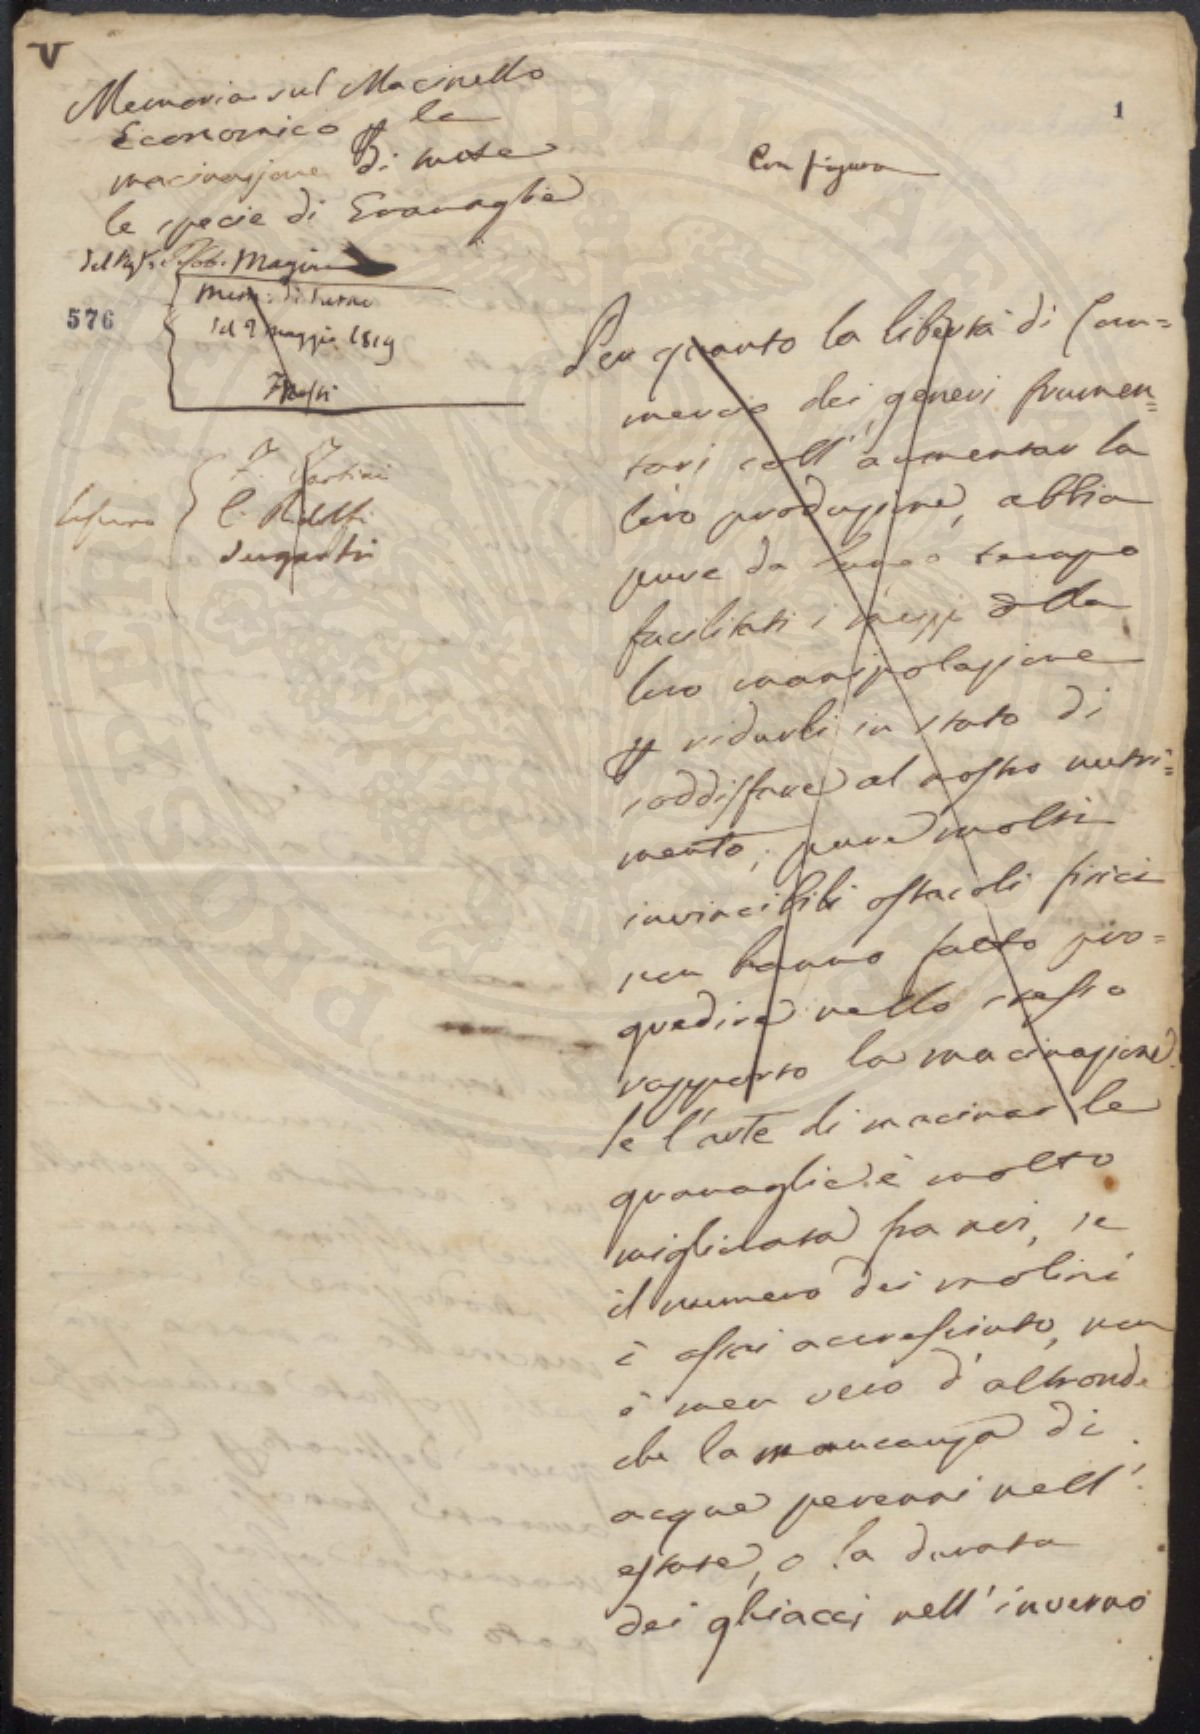 V
Memoria sul Macinello
Economico p le
macinazione di tutte
le specie di Granaglie
del Sig.
576
Mem: di turno
del 2 maggio 1819
C. Ridolfi
1
Con figura
Per quanto la libertà di Com=
mercio dei generi frumen=
tari coll' aumentar la
loro produzione, abbia
pure da lungo tempo
facilitati i mezzi della
loro manipolazione
p ridurli in stato di
soddisfare al nostro nutri=
mento, pure molti
invincibili ostacoli fisici
non hanno fatto pro=
gredire nello stesso
rapporto la macinazione.
Se l'arte di macinar le
granaglie è molto
migliorata fra noi, se
il numero dei molini
è assai accresciuto, non
è men vero d'altronde
che la mancanza di
acque perenni nell'
estate, o la durata
dei ghiacci nell'inverno